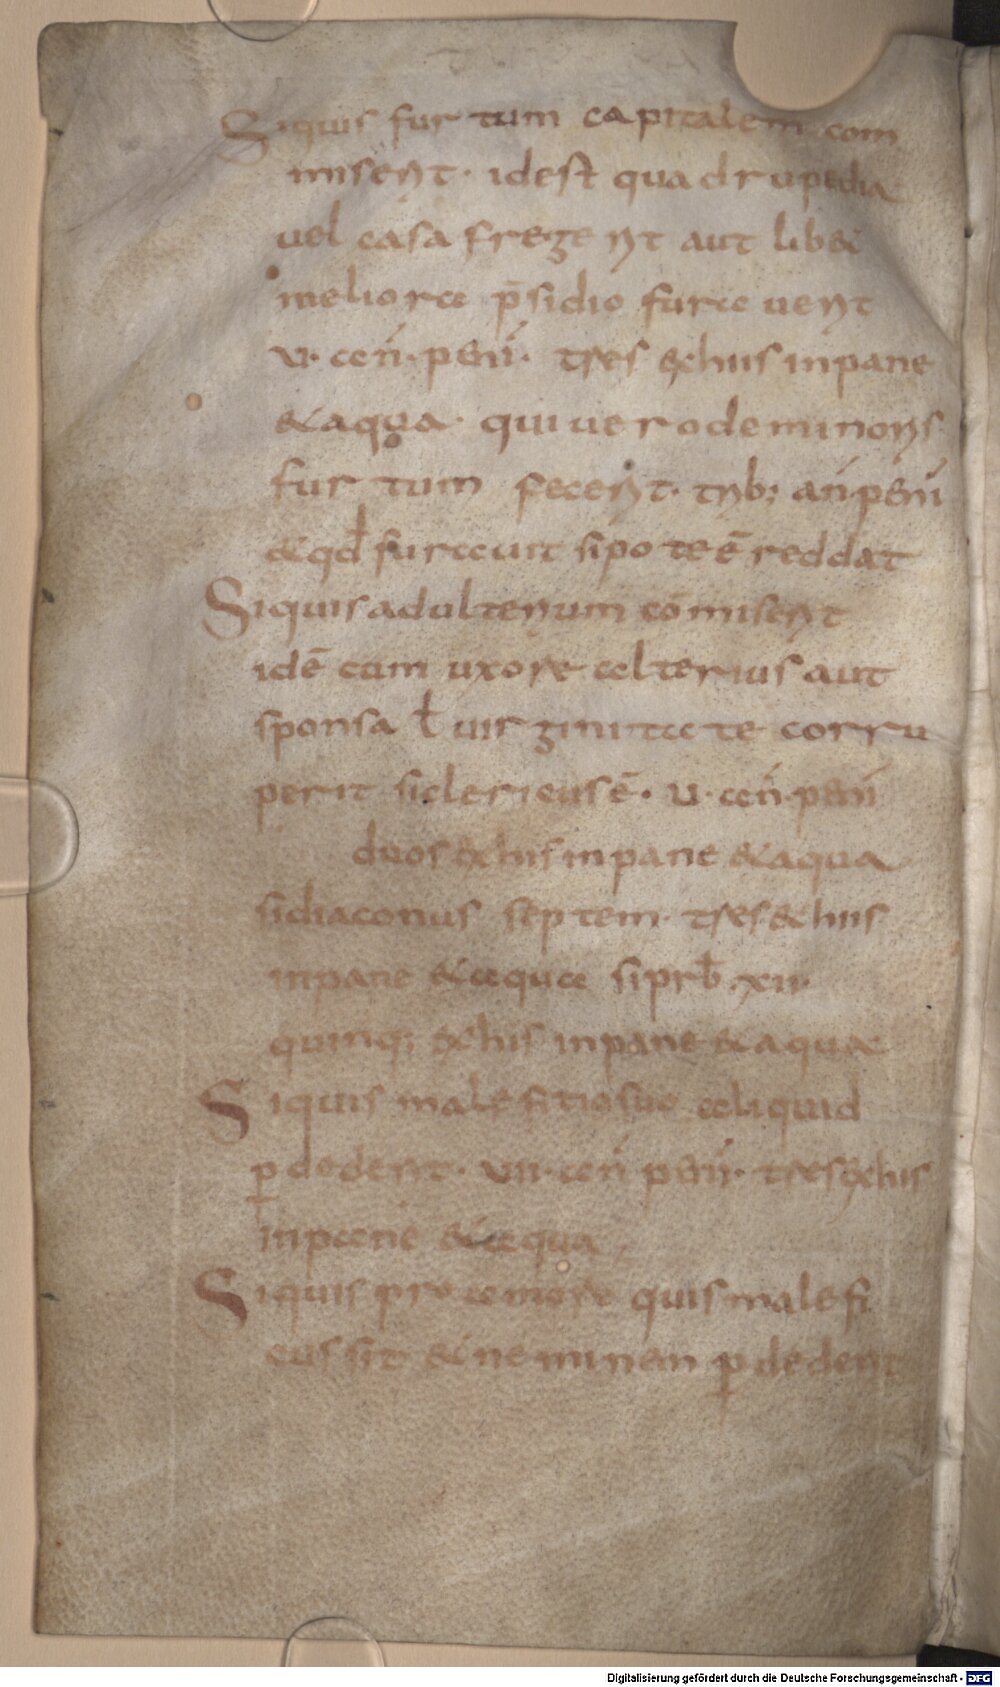 Siquis furtum capitalem com
miserit · idest quadrupedia
uel casa fregerit aut libet
meliore p̄sidio furauerit
v · ann · peni · tres ex his in pane
& aqua · qui uero de minoris
furtum fecerit · trib; an̄ peni
& qd̄ furauit si potē ē reddat
Siquis adulterium cōmiserit
id ē cum uxore alterius aut
sponsa ł uirginitate corru
perit si clericus ē · u · an̄ · peni
duos ex his in pane & aqua
si diaconus septem · tres ex his
in pane & aqua si prb̄ · xii ·
quinq; ex his in pane & aqua
Siquis malefitio suo aliquid
p̱dederit · vii · an̄ peni · tres ex his
in pane & aqua
Siquis pro amore quis malefi
cus sit & neminem p̱dederit
Digitalisierung gefördert durch die Deutsche Forschungsgemeinschaft - DFG